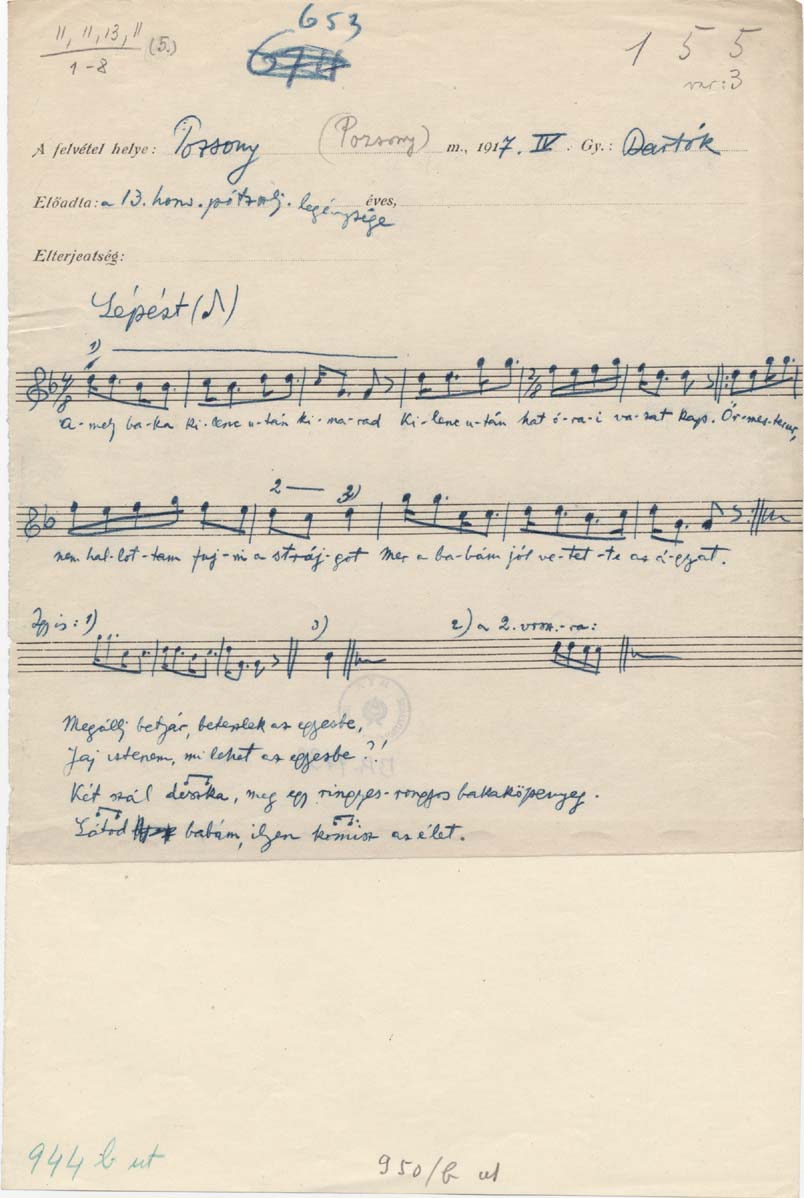 653
11, 11, 13, 11 (5.)
1-8
1 5 5
var: 3
A felvétel helye: Pozsony (Pozsony) m., 1917. IV. Gy.: Bartók
Előadta: a 13. honv. pótzlj. legénysége éves,
Elterjedtség:
Lépést (♪)
1)
A-mely ba-ka ki-lenc u-tán ki-ma-rad Ki-lenc u-tán hat ó-ra-i va-sat kap. Őr-mes-ter úr,
2 3)
nem hal-lot-tam fuj-ni a stráj-got Mer a ba-bám jól ve-tet-te az á-gyat.
Így is: 1) 3) 2) a 2. vrsz.-ra:
Megállj betyár, beteszlek az egyesbe,
Jaj istenem, mi lehet az egyesbe?!
Két szál deszka, meg egy ringyes-rongyos bakaköpenyeg.
Látod babám, ilyen komisz az élet.
944 b ut
950/b ut